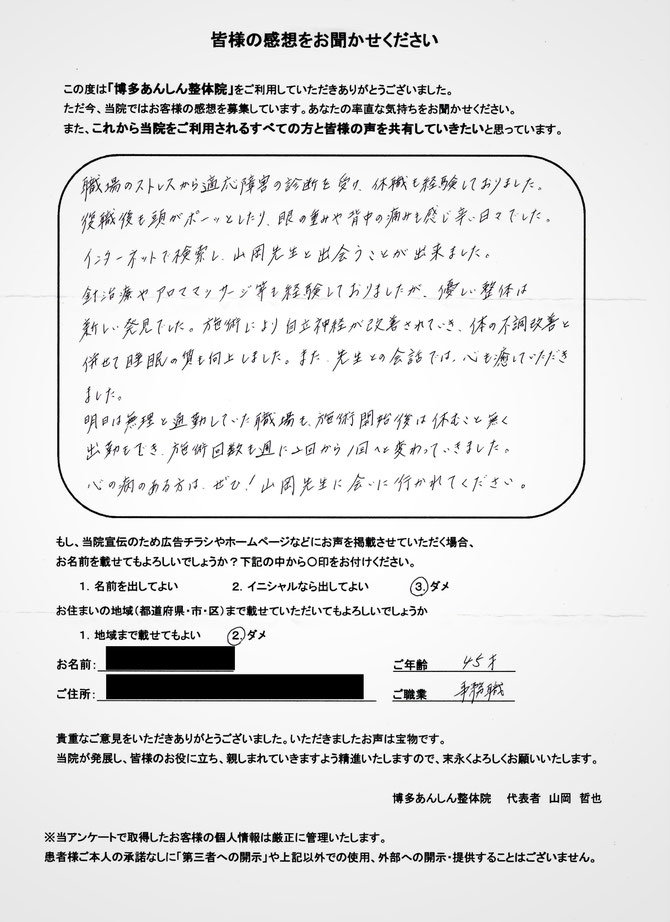 皆様の感想をお聞かせください
この度は「博多あんしん整体院」をご利用していただきありがとうございました。
ただ今、当院ではお客様の感想を募集しています。あなたの率直な気持ちをお聞かせください。
また、これから当院をご利用されるすべての方と皆様の声を共有していきたいと思っています。
職場のストレスから適応障害の診断を受け、休職も経験しておりました。
復職後も頭がボーッとしたり、眼の重みや背中の痛みも感じ辛い日々でした。
インターネットで検索し、山岡先生と出会うことが出来ました。
針治療やアロママッサージ等も経験しておりましたが、優しい整体は
新しい発見でした。施術により自立神経が改善されていき、体の不調改善と
併せて睡眠の質も向上しました。また、先生との会話では、心も癒していただき
ました。
明日は無理と通勤していた職場も、施術開始後は休むこと無く
出勤もでき、施術回数も週に2回から1回へと変わっていきました。
心の病のある方は、ぜひ!山岡先生に会いに行かれてください。
もし、当院宣伝のため広告チラシやホームページなどにお声を掲載させていただく場合、
お名前を載せてもよろしいでしょうか?下記の中から〇印をお付けください。
1. 名前を出してよい 2. イニシャルなら出してよい 3. ダメ
お住まいの地域(都道府県・市・区)まで載せていただいてもよろしいでしょうか
1. 地域まで載せてもよい 2. ダメ
お名前: ご年齢 45才
ご住所: ご職業 事務職
貴重なご意見をいただきありがとうございました。いただきましたお声は宝物です。
当院が発展し、皆様のお役に立ち、親しまれていきますよう精進いたしますので、末永くよろしくお願いいたします。
博多あんしん整体院 代表者 山岡 哲也
※当アンケートで取得したお客様の個人情報は厳正に管理いたします。
患者様ご本人の承諾なしに「第三者への開示」や上記以外での使用、外部への開示・提供することはございません。